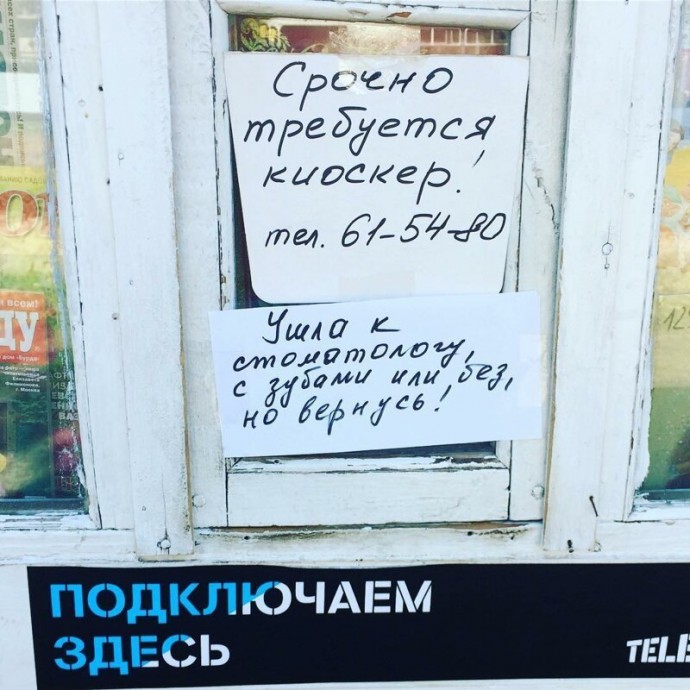 Срочно
требуется
киоскер!
тел. 61-54-80
Ушла к
стоматологу,
с зубами или без,
но вернусь!
ПОДКЛЮЧАЕМ
ЗДЕСЬ
TELE